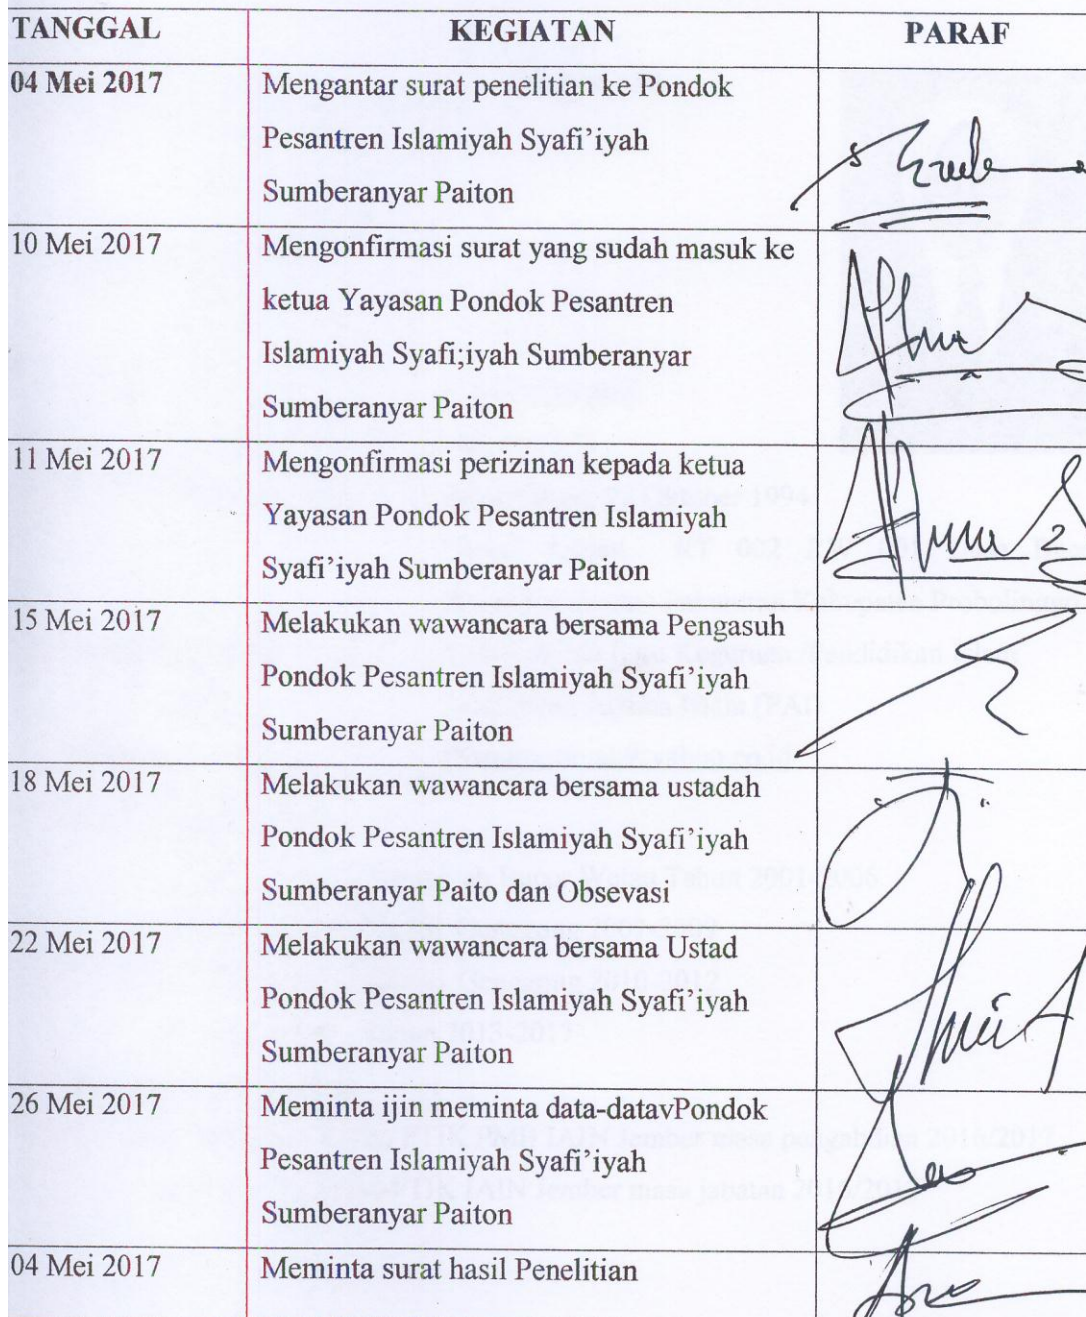 TANGGAL KEGIATAN PARAF
04 Mei 2017 Mengantar surat penelitian ke Pondok
Pesantren Islamiyah Syafi'iyah
Sumberanyar Paiton
10 Mei 2017 Mengonfirmasi surat yang sudah masuk ke
ketua Yayasan Pondok Pesantren
Islamiyah Syafi;iyah Sumberanyar
Sumberanyar Paiton
11 Mei 2017 Mengonfirmasi perizinan kepada ketua
Yayasan Pondok Pesantren Islamiyah
Syafi'iyah Sumberanyar Paiton
15 Mei 2017 Melakukan wawancara bersama Pengasuh
Pondok Pesantren Islamiyah Syafi'iyah
Sumberanyar Paiton
18 Mei 2017 Melakukan wawancara bersama ustadah
Pondok Pesantren Islamiyah Syafi'iyah
Sumberanyar Paito dan Obsevasi
22 Mei 2017 Melakukan wawancara bersama Ustad
Pondok Pesantren Islamiyah Syafi'iyah
Sumberanyar Paiton
26 Mei 2017 Meminta ijin meminta data-datavPondok
Pesantren Islamiyah Syafi'iyah
Sumberanyar Paiton
04 Mei 2017 Meminta surat hasil Penelitian